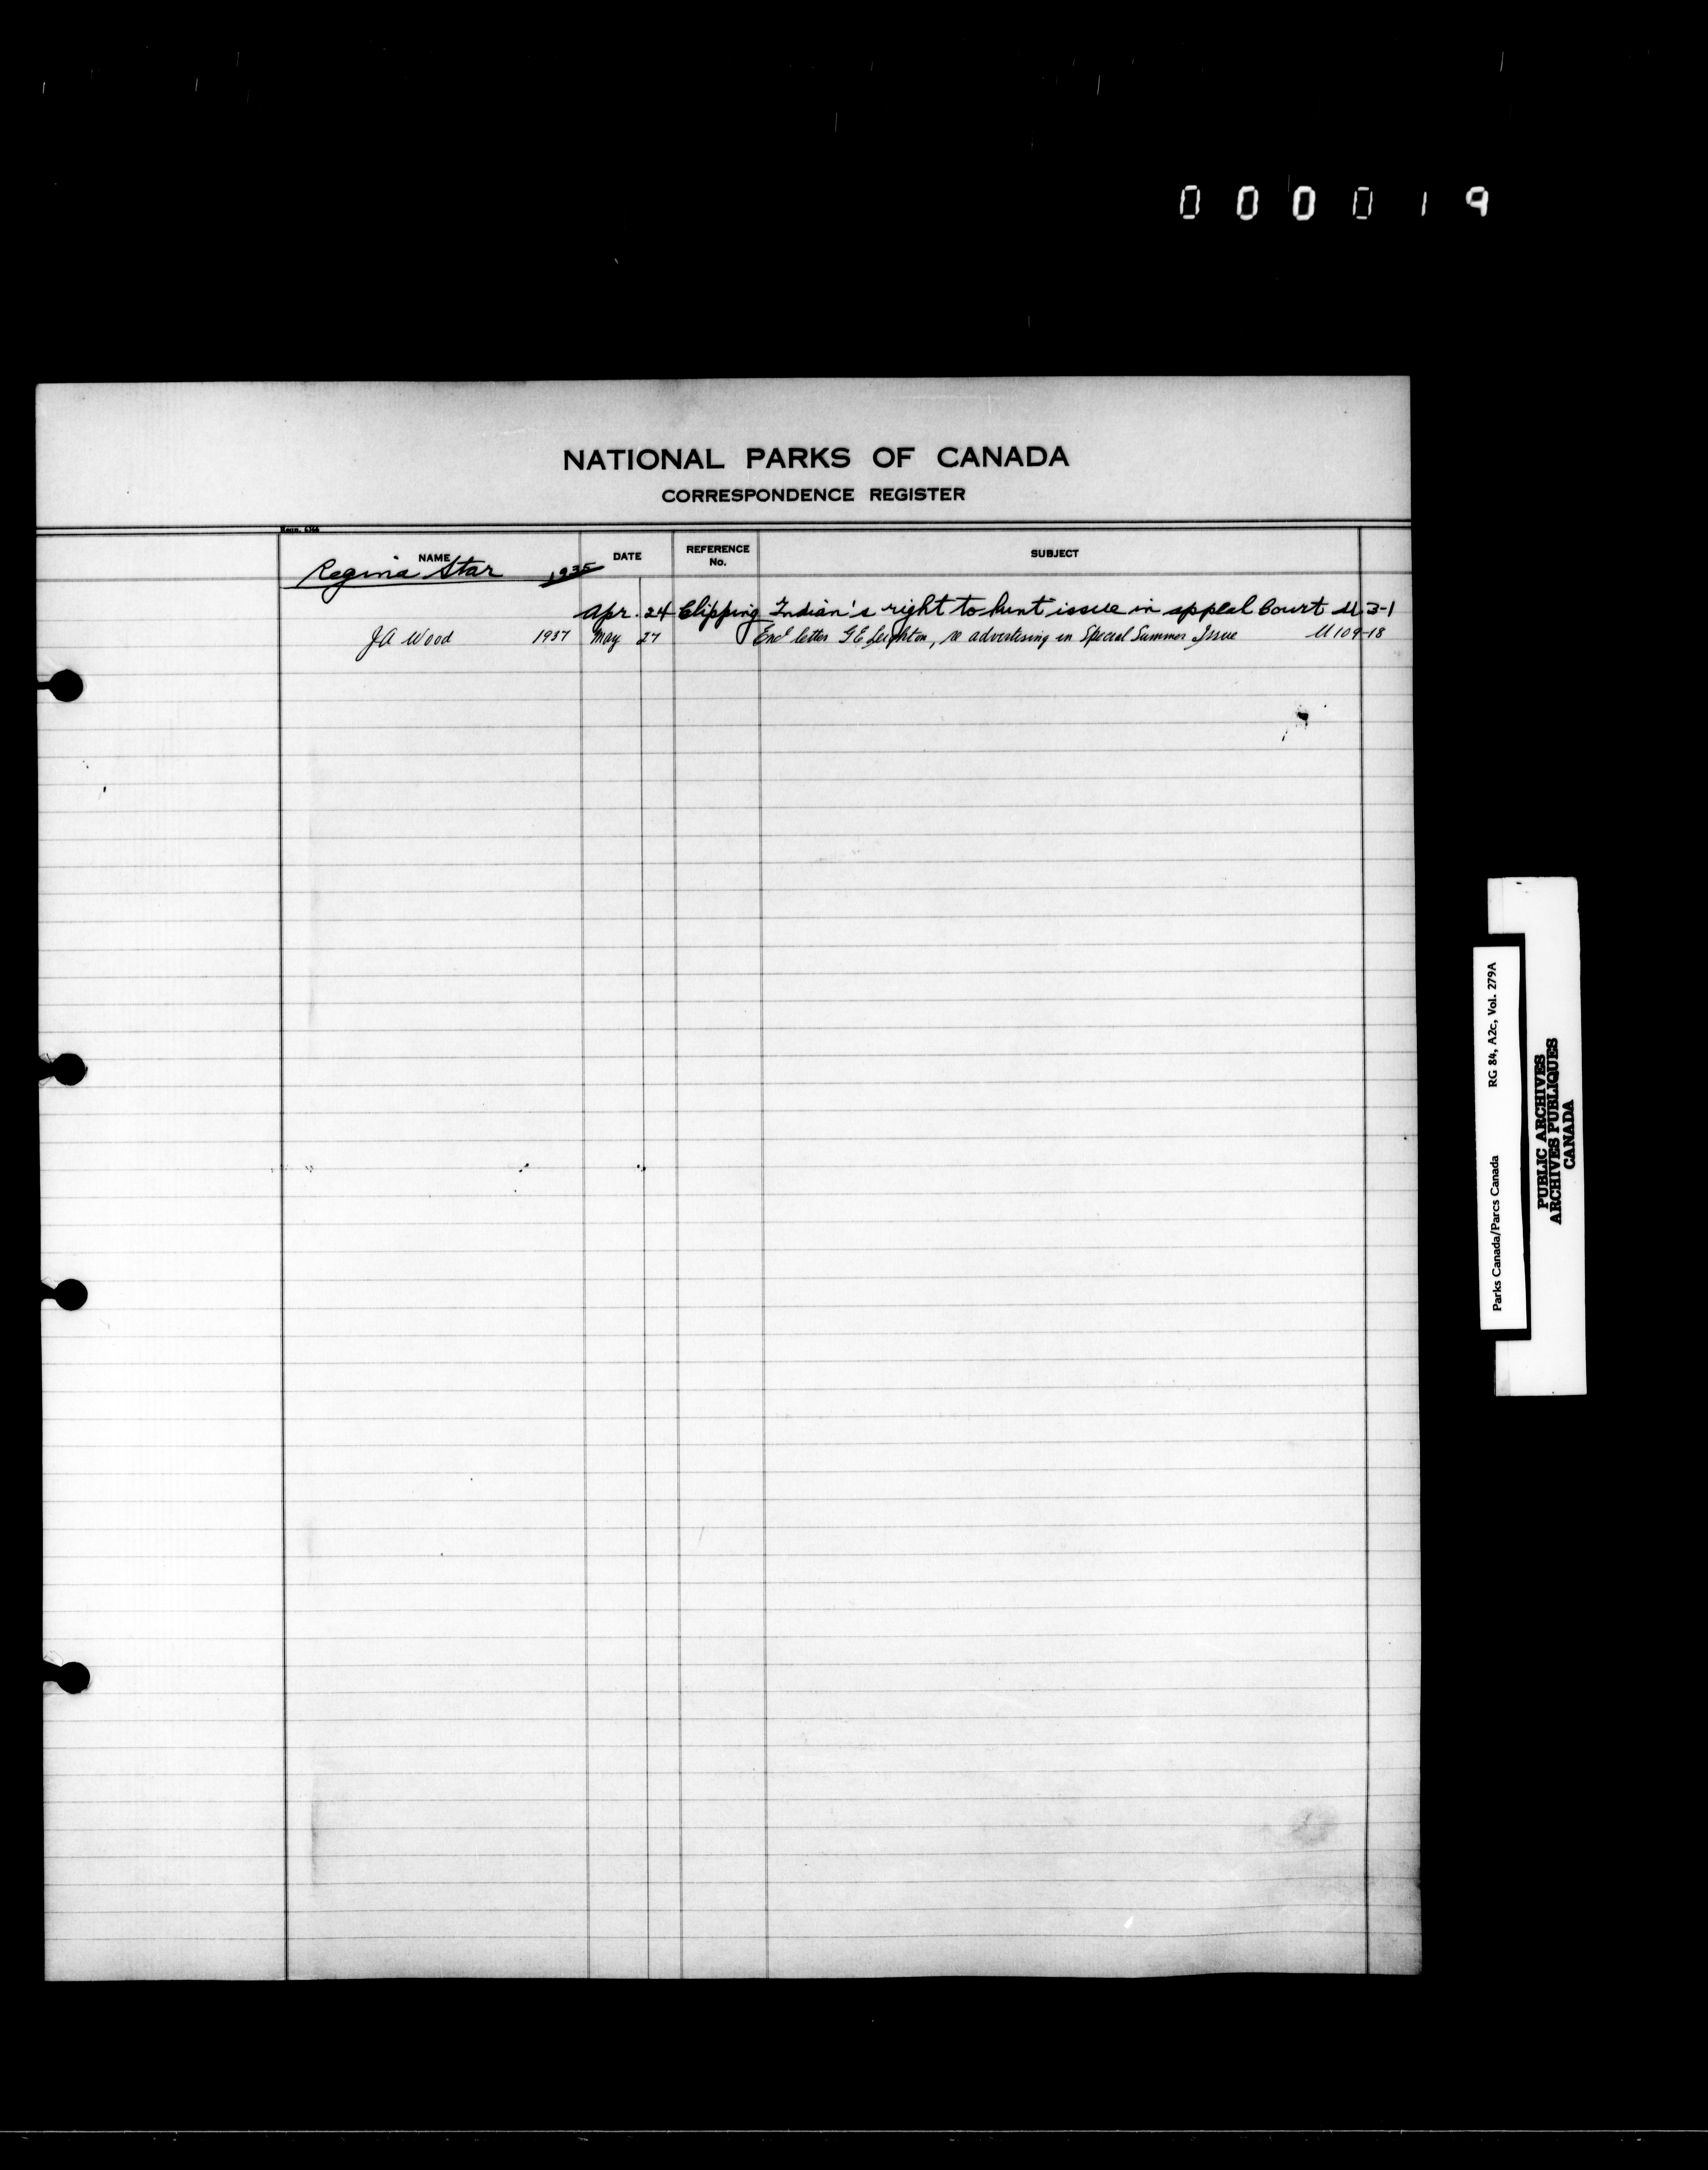 000019
NATIONAL PARKS OF CANADA
CORRESPONDENCE REGISTER
NAME DATE REFERENCE No. SUBJECT
Regina Star 1935
Apr. 24 Clipping Indian's right to hunt issue in appeal Court U.3-1
JA Wood 1937 May 27 Encl letter G E Leighton, re advertising in Special Summer Issue U109-18
Parks Canada/Parcs Canada RG 84, A2c, Vol. 279A
PUBLIC ARCHIVES
ARCHIVES PUBLIQUES
CANADA